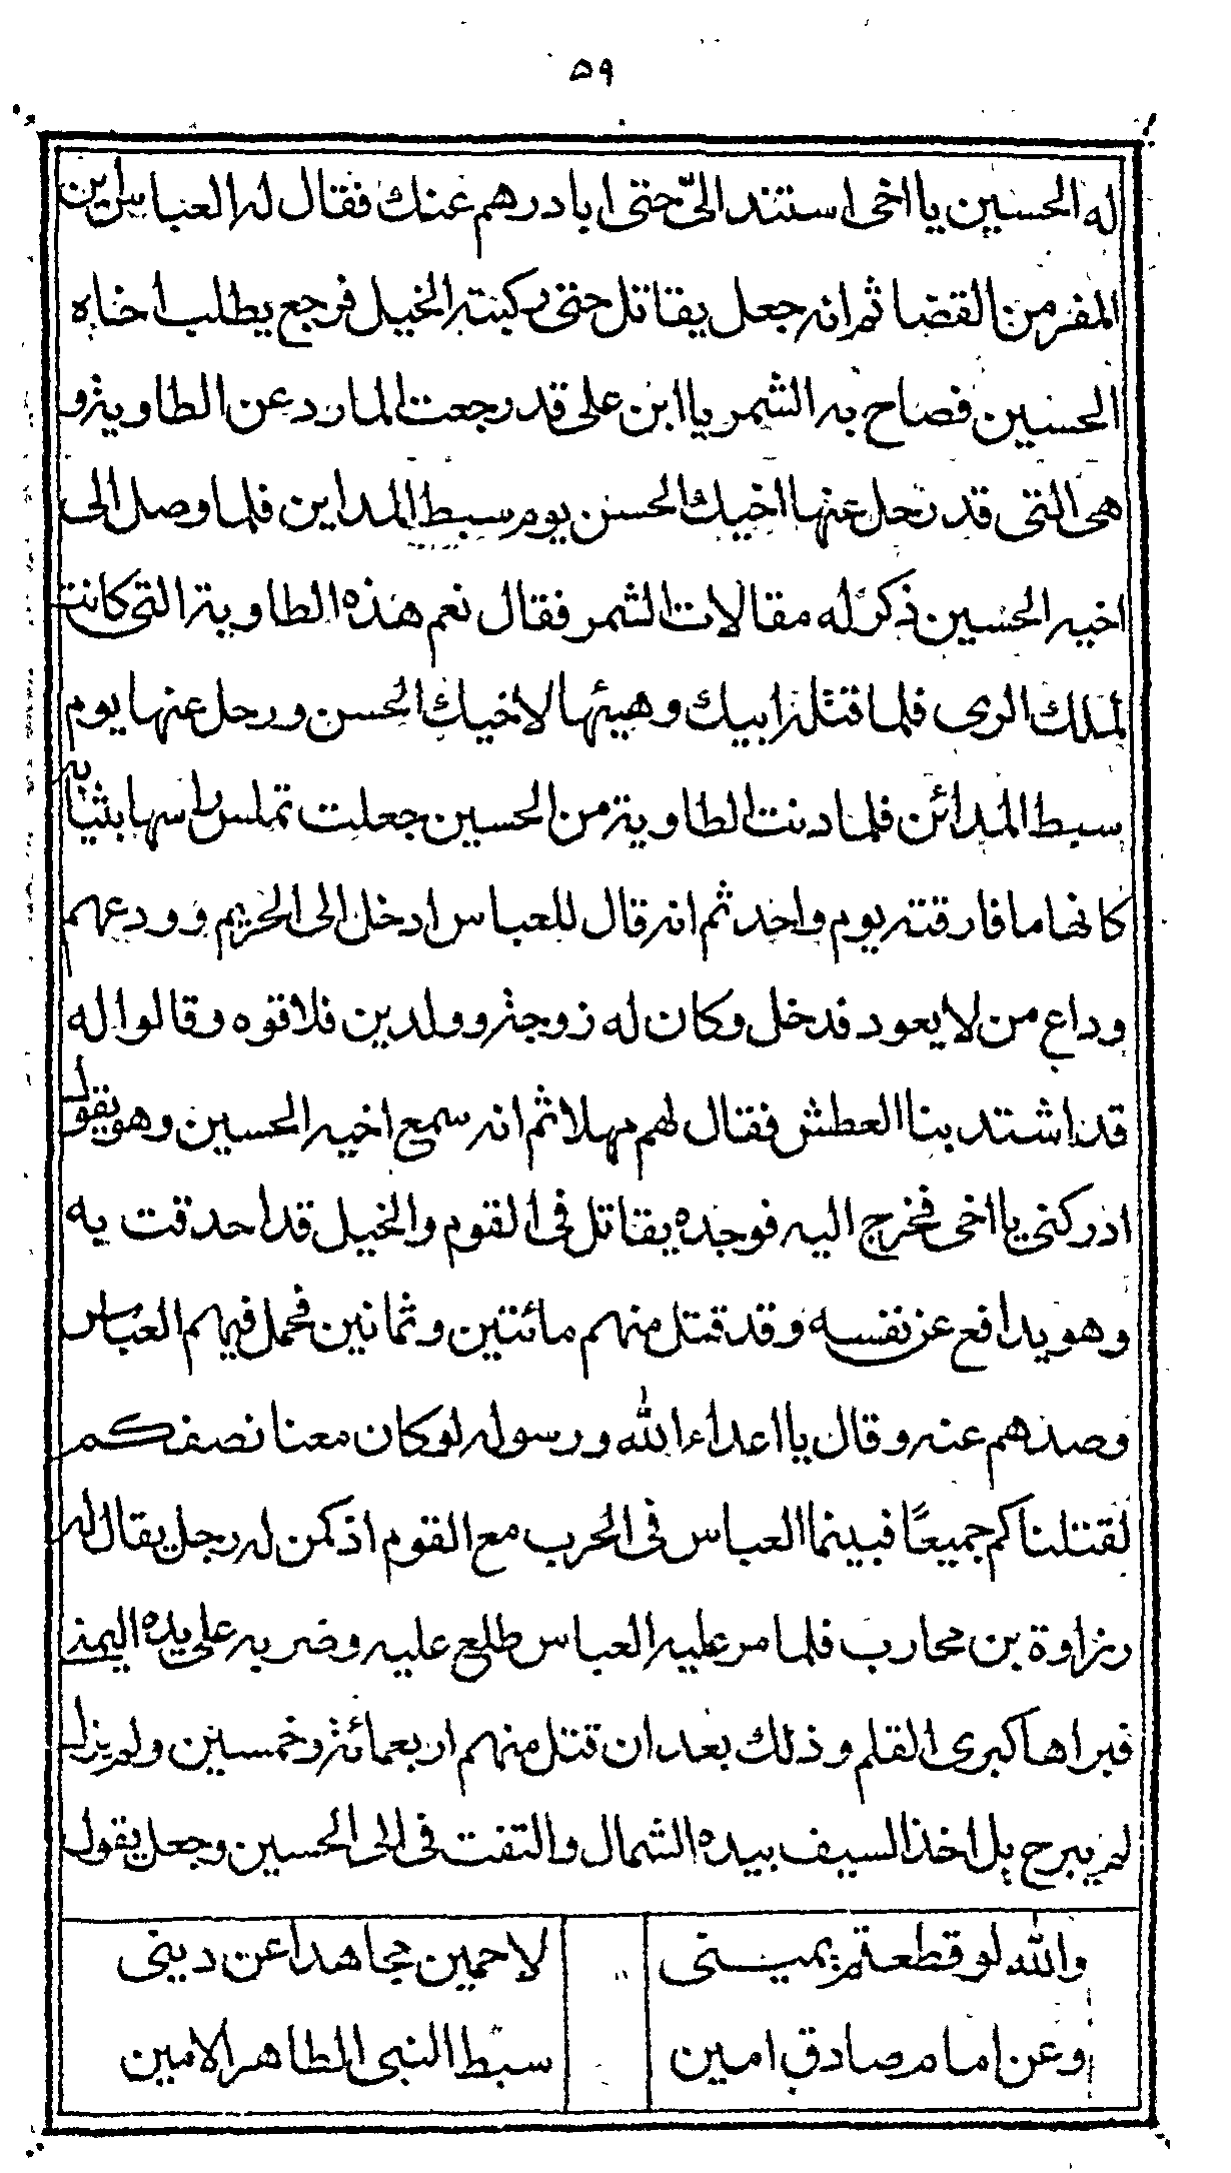 ٥٩
له الحسين يا اخى استند الىّ حتى ابادرهم عنك فقال له العباس اين
المفر من القضا ثم انه جعل يقاتل حتى ركبته الخيل فرجع يطلب اخاه
الحسين فصاح به الشمر يا ابن على قد رجعت المارد عن الطاوية و
هى التى قد رحل عنها اخيك الحسن يوم سبط المداين فلما وصل الى
اخيه الحسين ذكر له مقالات الشمر فقال نعم هذه الطاوية التى كانت
لملك الرى فلما قتله ابيك وهيئها لاخيك الحسن ورحل عنها يوم
سبط المدائن فلما دنت الطاوية من الحسين جعلت تملس راسها بثيابه
كانها ما فارقته يوم واحد ثم انه قال للعباس ادخل الى الحريم وودعهم
وداع من لا يعود فدخل وكان له زوجة وولدين فلاقوه وقالوا له
قد اشتد بنا العطش فقال لهم مهلا ثم انه سمع اخيه الحسين وهو يقول
ادركنى يا اخى فخرج اليه فوجده يقاتل فى القوم والخيل قد احدقت به
وهو يدافع عن نفسه وقد قتل منهم مائتين وثمانين فحمل فيهم العباس
وصدهم عنه وقال يا اعداء الله ورسوله لو كان معنا نصفكم
لقتلناكم جميعًا فبينما العباس فى الحرب مع القوم اذ كمن له رجل يقال له
رزاوة بن محارب فلما مر عليه العباس طلع عليه وضربه على يده اليمنى
فبراها كبرى القلم وذلك بعد ان قتل منهم اربعمائة وخمسين ولم يزل
لم يبرح بل اخذ السيف بيده الشمال والتفت فى الى الحسين وجعل يقول
والله لو قطعتم يمينى لاحمين مجاهدا عن دينى
وعن امام صادق امين سبط النبى المطاهر الامين